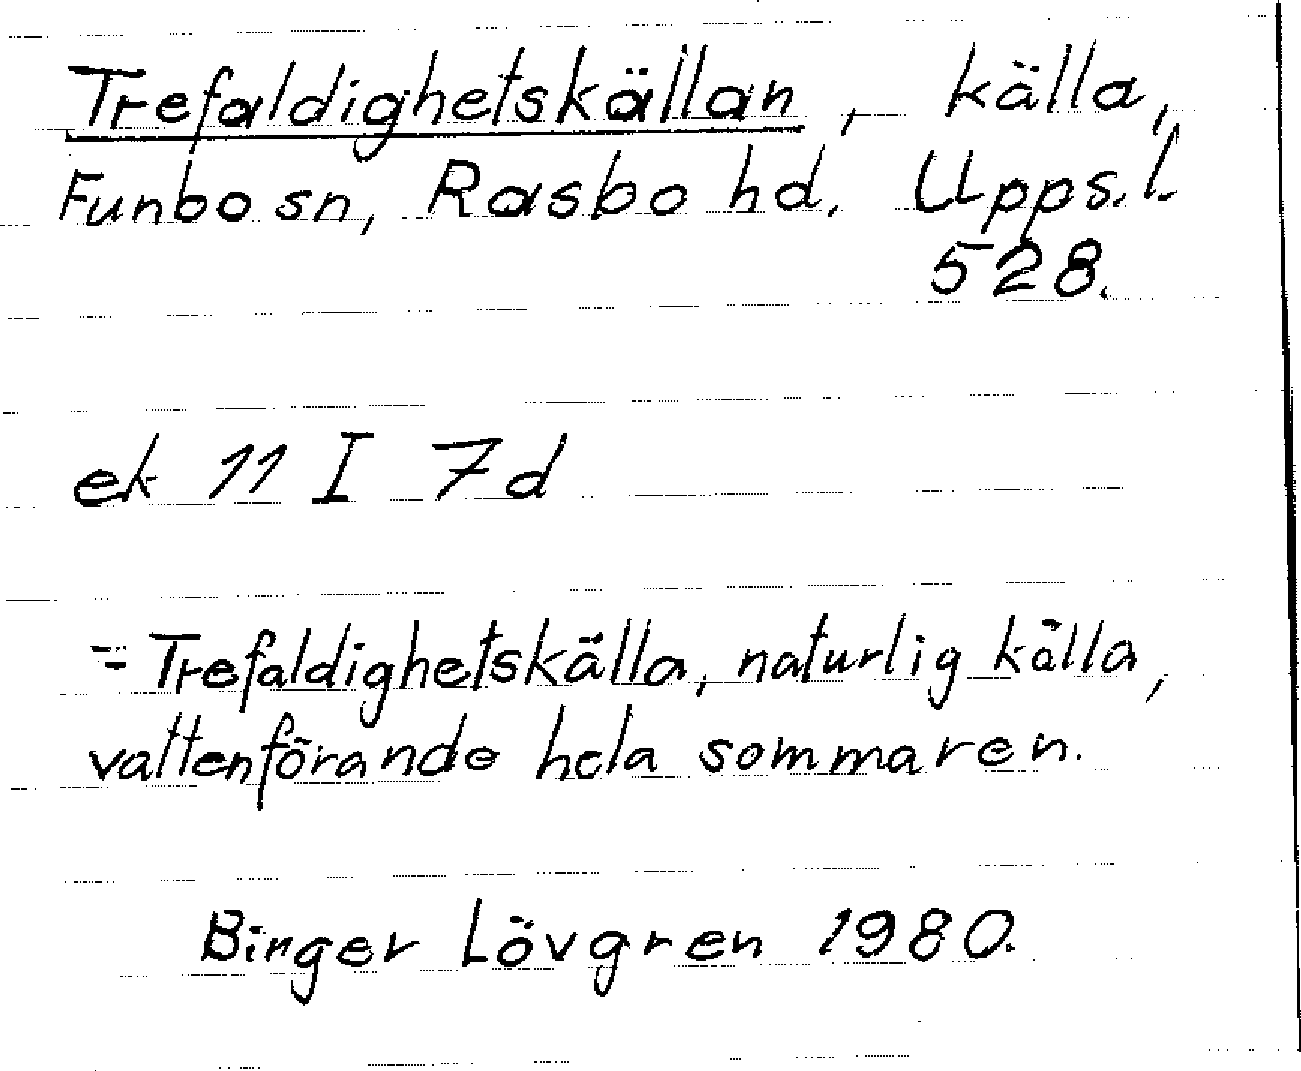 Trefaldighetskällan, källa,
Funbo sn, Rasbo hd. Upps.l.
528.
ek 11 I 7d
= Trefaldighetskälla, naturlig källa,
vattenförande hela sommaren.
Birger Lövgren 1980.